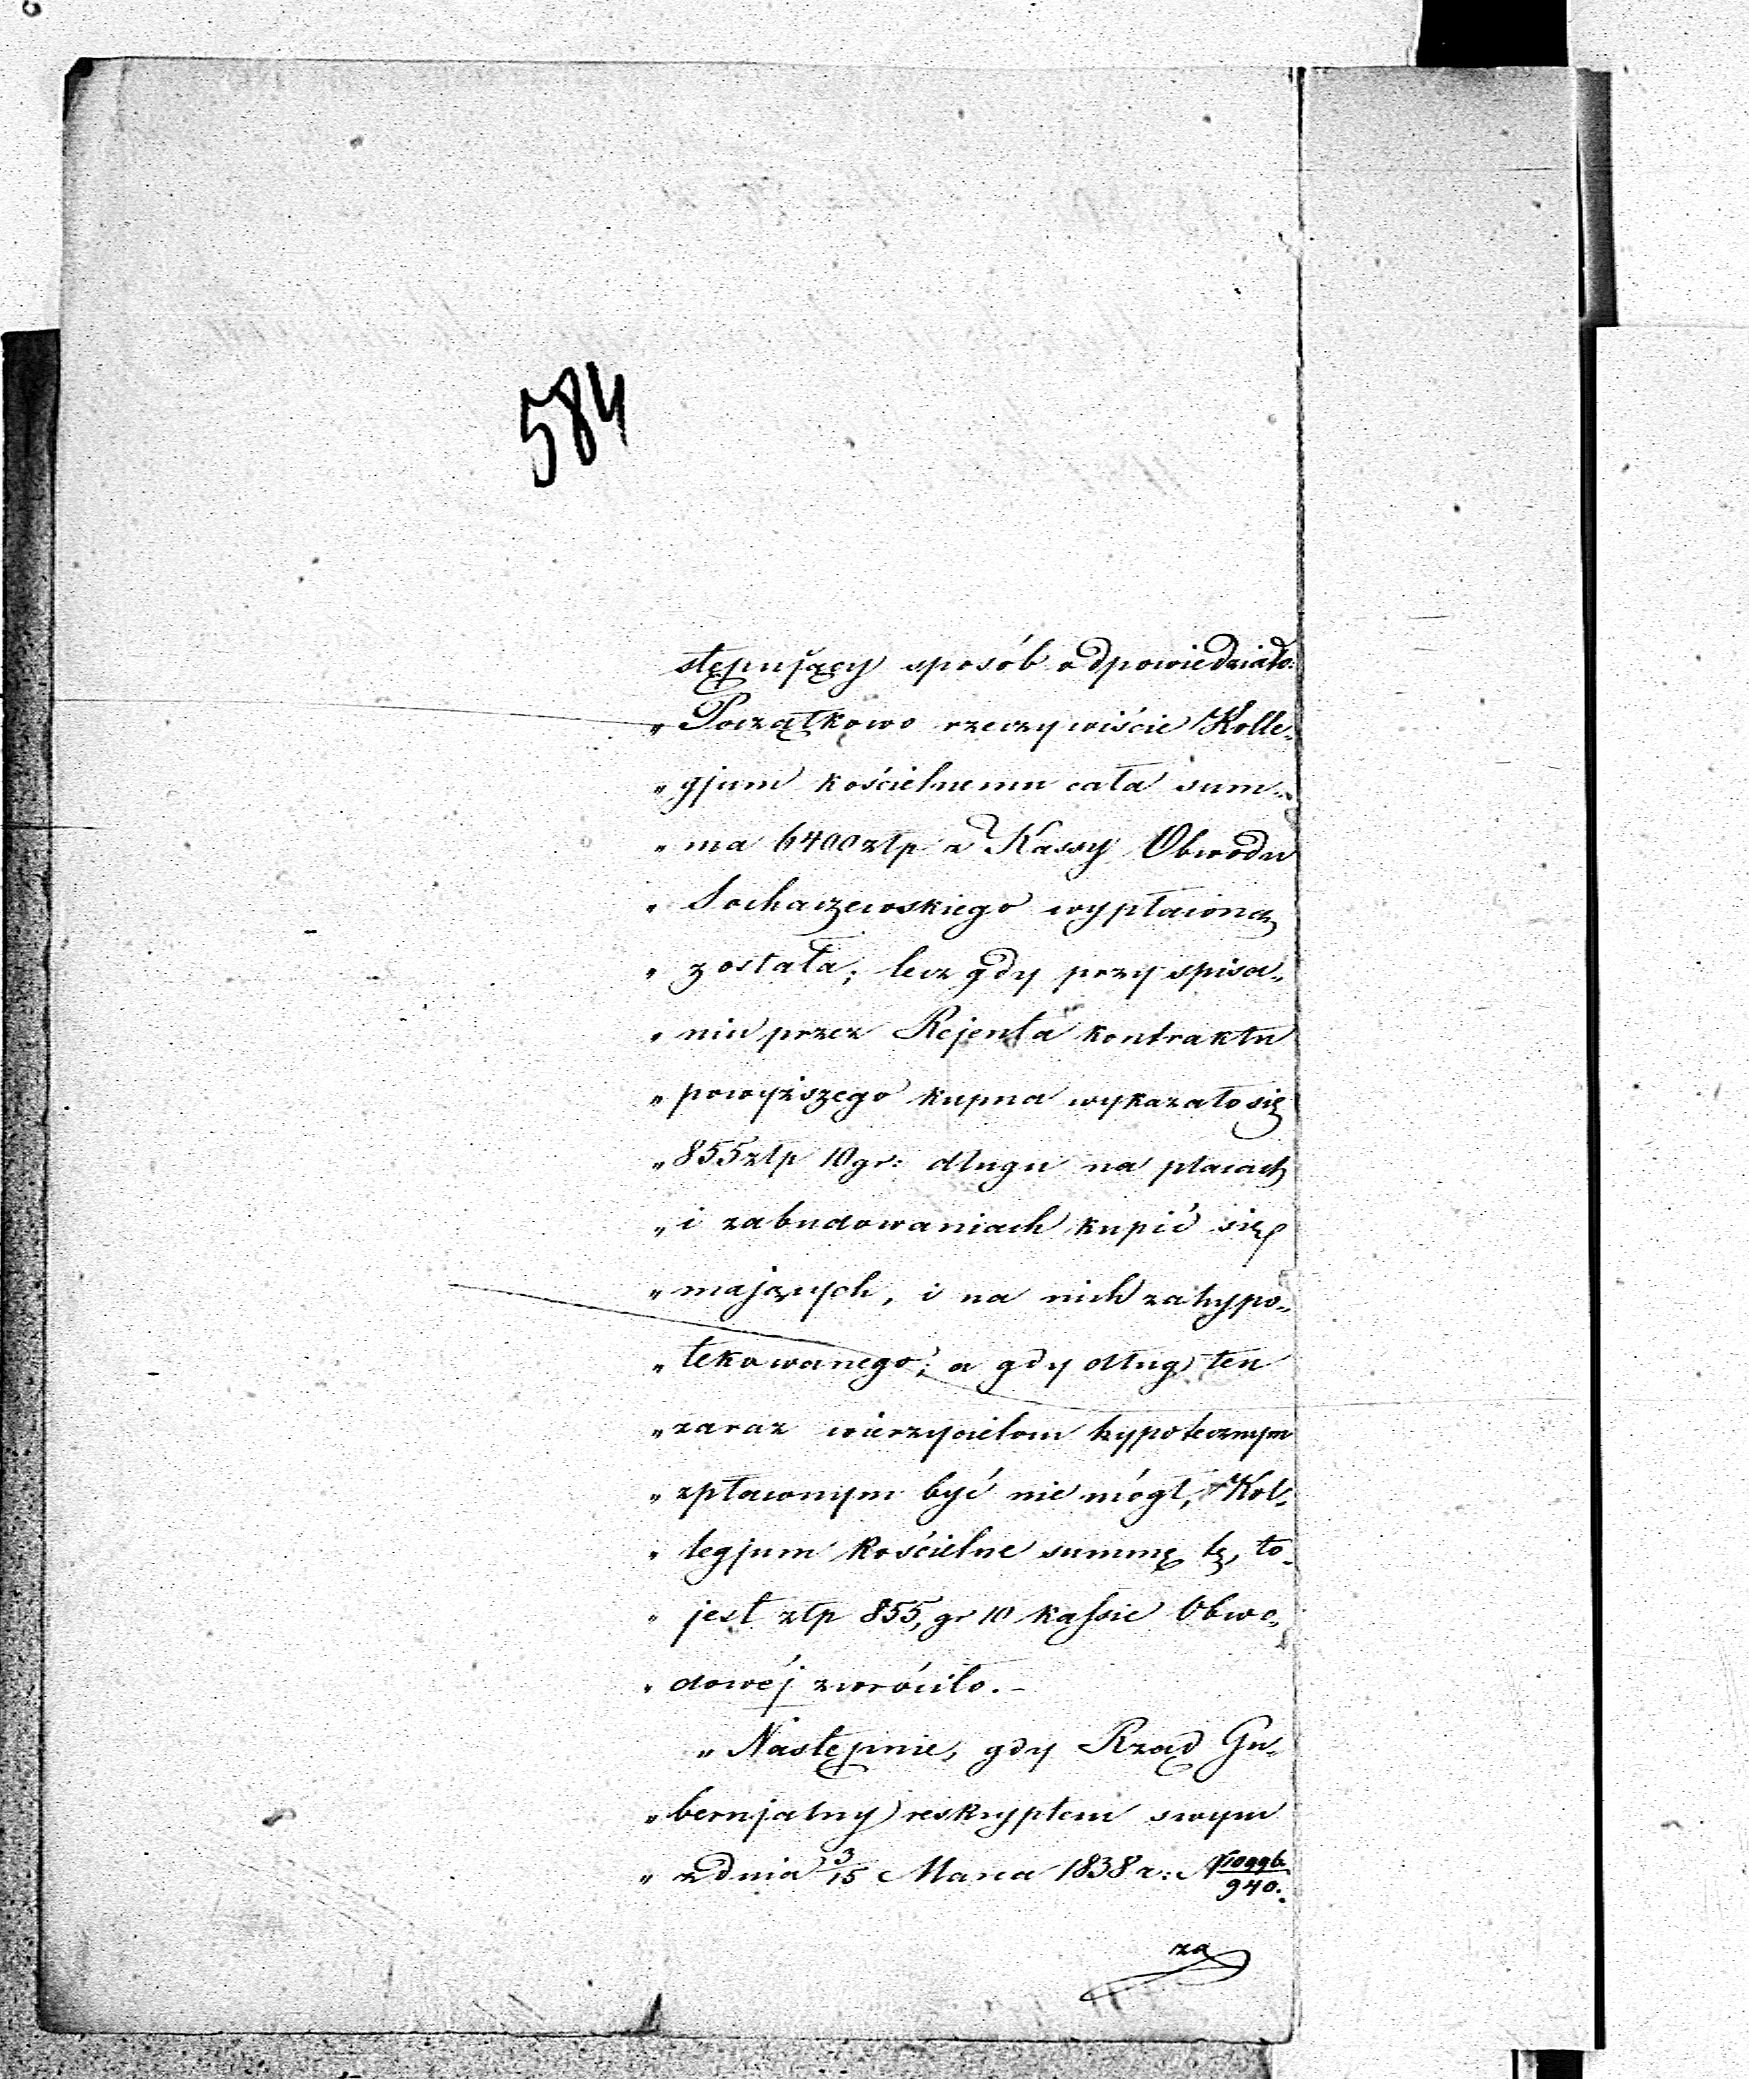 584
stępujący sposób odpowiedziało:
„Początkowo rzeczywiście Kolle„
„gjum kościelnemu cała sum„
„ma 6400 złp z Kassy Obwodu
„Sochaczewskiego wypłaconą
„została; lecz gdy przy spisa„
„niu przez Rejenta kontraktu
„powyższego kupna wykazało się
„855 złp 10 gr: długu na placach
„i zabudowaniach kupić się
„mających, i na nich zahypo„
„tekowanego; a gdy dług ten
„zaraz wierzycielom hypotecznym
„zpłaconym być nie mógł, Kol„
„legjum Kościelne summę tę, to„
„jest złp 855, gr 10 kassie Obwo„
„dowéj zwróciło.–
„Następnie, gdy Rząd Gu„
„bernjalny reskryptem swym
„z dnia 3/15 Marca 1838 r: N 10996/940.
za